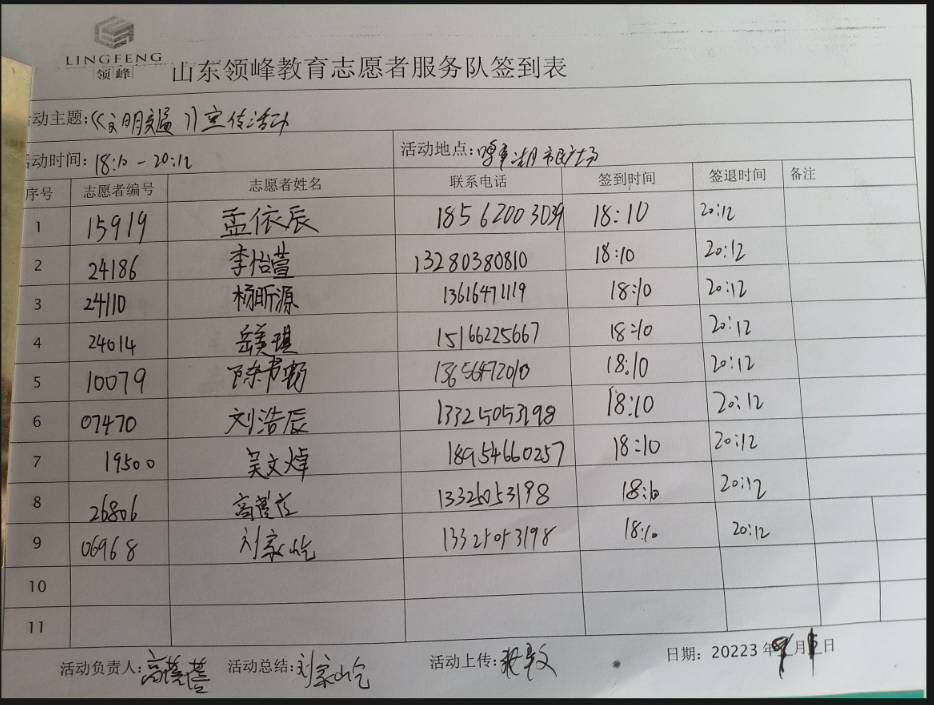 LINGFENG
领峰
山东领峰教育志愿者服务队签到表
活动主题:《文明交通》宣传活动
活动时间: 18:10-20:12 活动地点: 市民广场
序号 志愿者编号 志愿者姓名 联系电话 签到时间 签退时间 备注
1 15919 孟依辰 18562003039 18:10 20:12
2 24186 李怡萱 13280380810 18:10 20:12
3 24110 杨昕源 13616471119 18:10 20:12
4 24014 岳美琪 15166225667 18:10 20:12
5 10079 18:10 20:12
6 07470 刘浩辰 13325053198 18:10 20:12
7 19500 吴文焯 18954660257 18:10 20:12
8 26806 13325053198 18:10 20:12
9 06968 刘家屹 13325053198 18:10 20:12
10
11
活动负责人: 活动总结:刘家屹 活动上传: 日期: 20223 年 月 日